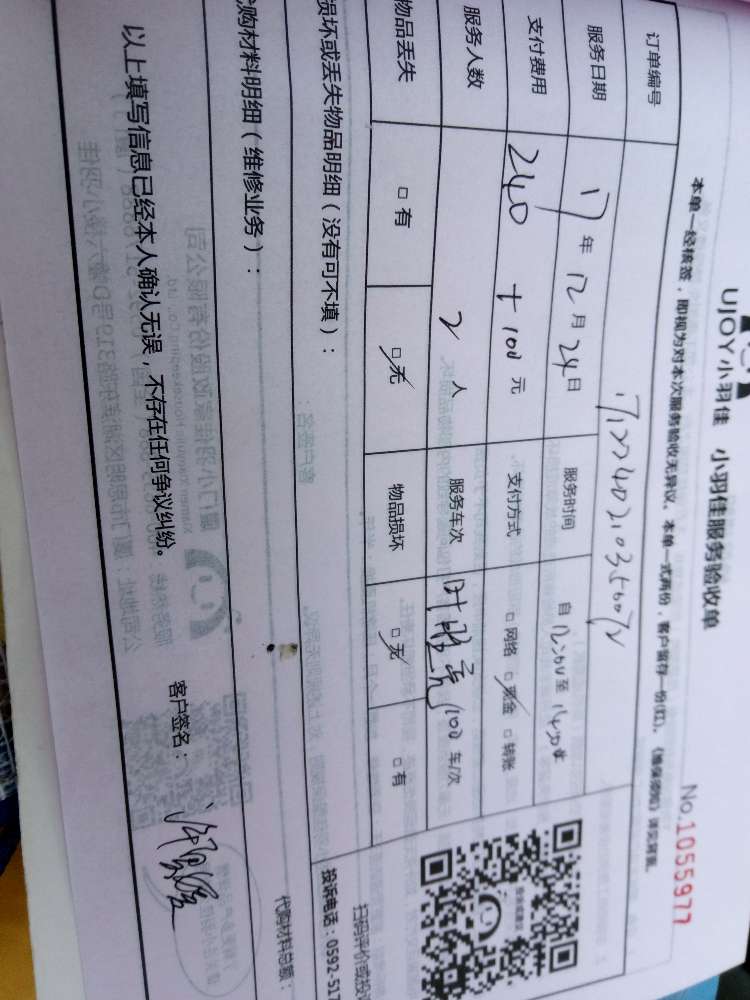 UJOY小羽佳 小羽佳服务验收单
No.1055977
本单一经核签，即视为对本次服务验收无异议。本单一式两份，客户留存一份(红)。《维保须知》详见背面。
订单编号
服务日期 17年12月24日 服务时间
支付费用 240+100元 支付方式 □网络 □现金 □转账
服务人数 2人 服务车次 100车/次
物品丢失 □有 □无 物品损坏 □无 □有
损坏或丢失物品明细（没有可不填）：
扫码评价或投
投诉电话：0592-517
购材料明细（维修业务）：
代购材料总额：
以上填写信息已经本人确认无误，不存在任何争议纠纷。 客户签名：